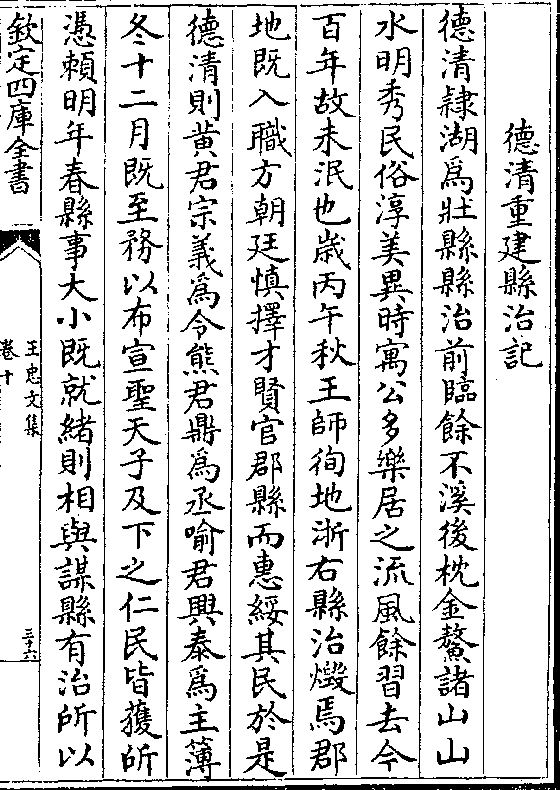 德清重建縣治記
德清隷湖爲壯縣縣治前臨餘不溪後枕金鰲諸山山
水明秀民俗淳美異時寓公多樂居之流風餘習去今
百年故未泯也歲丙午秋王師徇地浙右縣治燬焉郡
地既入職方朝廷慎擇才賢官郡縣而惠綏其民於是
德清則黄君宗義爲令熊君鼎爲丞喻君興泰爲主簿
冬十二月既至務以布宣聖天子及下之仁民皆獲所
憑賴明年春縣事大小既就緒則相與謀縣有治所以
欽定四庫全書
王忠文集
卷十
三十六